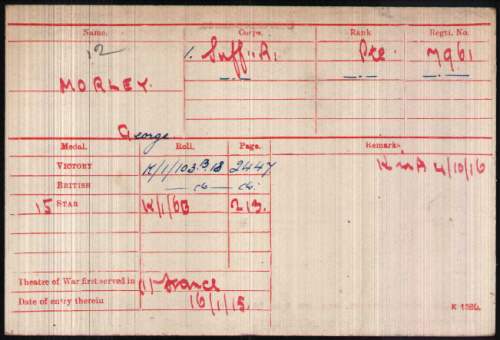 Name. Corps. Rank. Regtl. No.
12 1. Suff. R. Pte. 7961
MORLEY.
George
Medal. Roll. Page. Remarks
VICTORY K/1/103.B.13 2447 K in A 4/10/16
BRITISH — do — do.
15 STAR K/1/6B 213.
Theatre of War first served in (1) France
Date of entry therein 16/1/15.
K 1380.